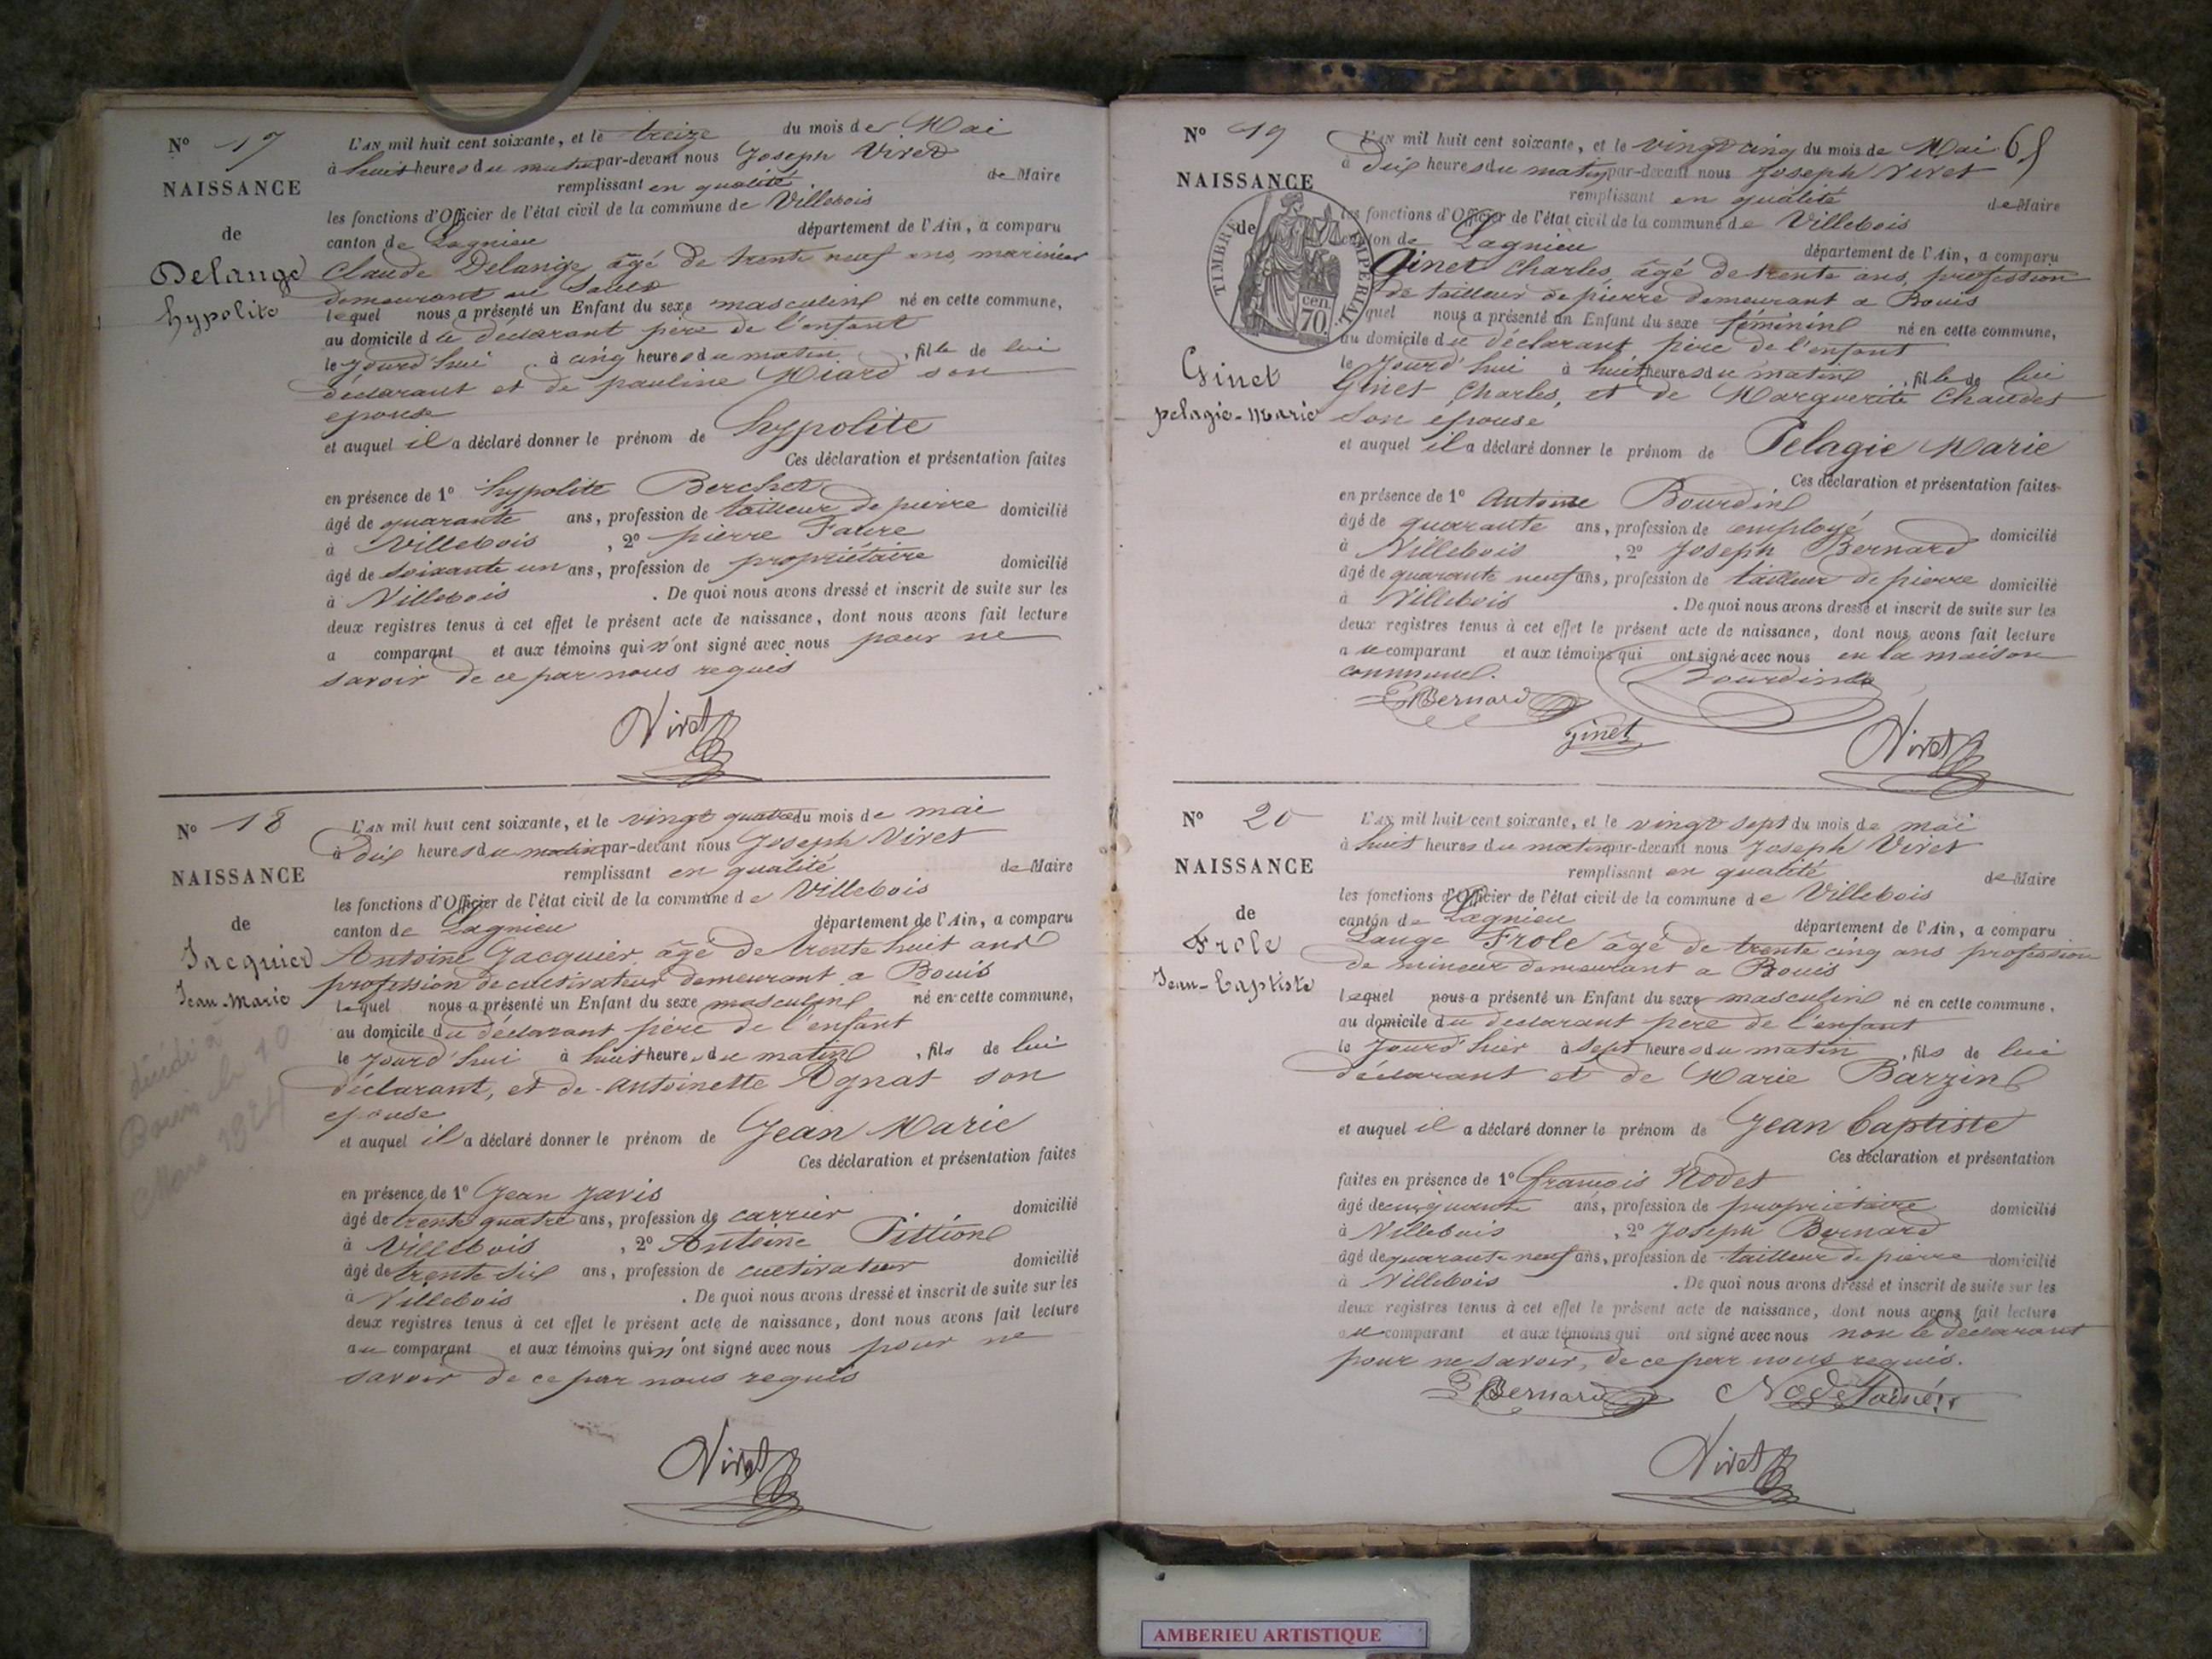 N° 17
NAISSANCE
de
Delange
hypolite
L'AN mil huit cent soixante, et le treize du mois de Mai
à huit heures du matin par-devant nous Joseph Viret
remplissant en qualité de Maire
les fonctions d'Officier de l'état civil de la commune de Villebois
canton de Lagnieu département de l'Ain, a comparu
Claude Delange, âgé de trente neuf ans, marinier
demeurant au Sault
lequel nous a présenté un Enfant du sexe masculin né en cette commune,
au domicile d le déclarant père de l'enfant
le jourd'hui à cinq heures du matin, fils de lui
déclarant et de pauline Miard son
epouse
et auquel il a déclaré donner le prénom de hypolite
Ces déclaration et présentation faites
en présence de 1° hypolite Berchet
âgé de quarante ans, profession de tailleur de pierre domicilié
à Villebois, 2° pierre Favre
âgé de soixante un ans, profession de propriétaire domicilié
à Villebois. De quoi nous avons dressé et inscrit de suite sur les
deux registres tenus à cet effet le présent acte de naissance, dont nous avons fait lecture
a comparant et aux témoins qui n'ont signé avec nous pour ne
savoir de ce par nous requis
Viret
N° 18
NAISSANCE
de
Jacquier
Jean-Marie
décédé à
Bouis le 10
Mars 1924
L'AN mil huit cent soixante, et le vingt quatre du mois de mai
à dix heures du matin par-devant nous Joseph Viret
remplissant en qualité de Maire
les fonctions d'Officier de l'état civil de la commune de Villebois
canton de Lagnieu département de l'Ain, a comparu
Antoine Jacquier, âgé de trente huit ans
profession de cultivateur demeurant a Bouis
lequel nous a présenté un Enfant du sexe masculin né en cette commune,
au domicile du déclarant père de l'enfant
le jourd'hui à huit heures du matin, fils de lui
déclarant, et de Antoinette Agnat son
epouse
et auquel il a déclaré donner le prénom de Jean Marie
Ces déclaration et présentation faites
en présence de 1° Jean Javis
âgé de trente quatre ans, profession de carrier domicilié
à Villebois, 2° Antoine Pittion
âgé de trente six ans, profession de cultivateur domicilié
à Villebois. De quoi nous avons dressé et inscrit de suite sur les
deux registres tenus à cet effet le présent acte de naissance, dont nous avons fait lecture
au comparant et aux témoins qui n'ont signé avec nous pour ne
savoir de ce par nous requis
Viret
N° 19
NAISSANCE
de
TIMBRE IMPERIAL
70 cen
Ginet
pelagie-Marie
L'AN mil huit cent soixante, et le vingt cinq du mois de Mai 65
à dix heures du matin par-devant nous Joseph Viret
remplissant en qualité de Maire
les fonctions d'Officier de l'état civil de la commune de Villebois
canton de Lagnieu département de l'Ain, a comparu
Ginet Charles, âgé de trente ans, profession
de tailleur de pierre demeurant a Bouis
quel nous a présenté un Enfant du sexe féminin né en cette commune,
au domicile du déclarant père de l'enfant
le jourd'hui à huit heures du matin, fille de lui
Ginet Charles, et de Marguerite Chaudet
son epouse
et auquel il a déclaré donner le prénom de Pelagie Marie
Ces déclaration et présentation faites
en présence de 1° Antoine Bourdin
âgé de quarante ans, profession de employé domicilié
à Villebois, 2° Joseph Bernard
âgé de quarante neuf ans, profession de tailleur de pierre domicilié
à Villebois. De quoi nous avons dressé et inscrit de suite sur les
deux registres tenus à cet effet le présent acte de naissance, dont nous avons fait lecture
au comparant et aux témoins qui ont signé avec nous en la maison
commune.
Bourdin
Bernard
Ginet
Viret
N° 20
NAISSANCE
de
Frole
Jean-baptiste
L'AN mil huit cent soixante, et le vingt sept du mois de mai
à huit heures du matin par-devant nous Joseph Viret
remplissant en qualité de Maire
les fonctions d'Officier de l'état civil de la commune de Villebois
canton de Lagnieu département de l'Ain, a comparu
Lange Frole âgé de trente cinq ans profession
de mineur demeurant a Bouis
lequel nous a présenté un Enfant du sexe masculin né en cette commune,
au domicile du déclarant père de l'enfant
le jourd'hier à sept heures du matin, fils de lui
déclarant et de Marie Barzin
et auquel il a déclaré donner le prénom de Jean baptiste
Ces déclaration et présentation
faites en présence de 1° françois Nodet
âgé de cinquante ans, profession de propriétaire domicilié
à Villebois, 2° Joseph Bernard
âgé de quarante neuf ans, profession de tailleur de pierre domicilié
à Villebois. De quoi nous avons dressé et inscrit de suite sur les
deux registres tenus à cet effet le présent acte de naissance, dont nous avons fait lecture
au comparant et aux témoins qui ont signé avec nous non le déclarant
pour ne savoir, de ce par nous requis.
Bernard Nodet ainé
Viret
AMBERIEU ARTISTIQUE